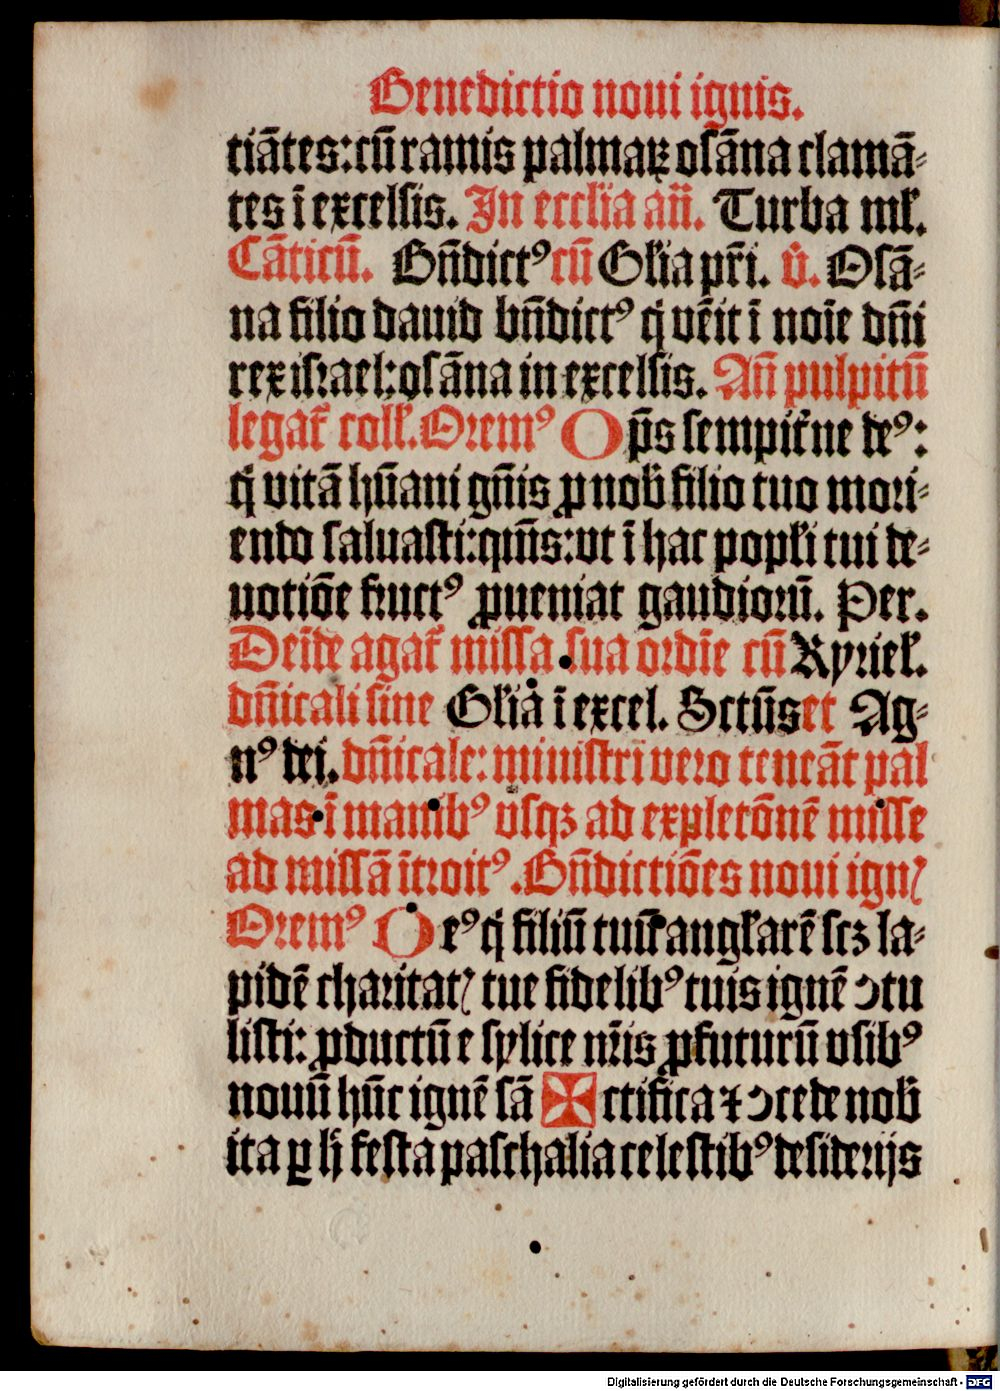 Benedictio noui ignis.
tiātes: cū ramis palmaꝝ osāna clamā⸗
tes ī excelsis. In ecclīa añ. Turba ml̃.
Cāticū. Bñdictꝰ cū Gl̃ia pr̃i. v̾. Osā⸗
na filio dauid bñdictꝰ q̇ vēit ī noīe dñi
rex israel: osāna in excelsis. Añ pulpitū
legat̃ coll̃. Oremꝰ Op̄s sempit̾ne deꝰ:
q̇ vitā hūani gñis ꝓ nob̃ filio tuo mori⸗
endo saluasti: qm̃s: vt ī hac popl̃i tui de⸗
uotiōe fructꝰ ꝓueniat gaudiorū. Per.
Deīde agat̃ missa sua ordīe cū Kyriel̃.
dñicali sine Gl̃ia ī excel. Sctūs et Ag⸗
nꝰ dei. dñicale: ministri vero teneāt pal
mas ī manibꝰ vsqꝫ ad expletōnē misse
ad missā ītroitꝰ. Bñdictiōes noui ignꝭ
Oremꝰ Deꝰ q̇ filiū tuū angl̃arē scꝫ la⸗
pidē charitatꝭ tue fidelibꝰ tuis ignē ꝯtu
listi: ꝓductū e sylice nr̃is ꝓfuturū vsibꝰ
nouū hūc ignē sā ✠ ctifica ⁊ ꝯcede nob̃
ita ꝑ h̃ festa paschalia celestibꝰ desiderijs
Digitalisierung gefördert durch die Deutsche Forschungsgemeinschaft - DFG